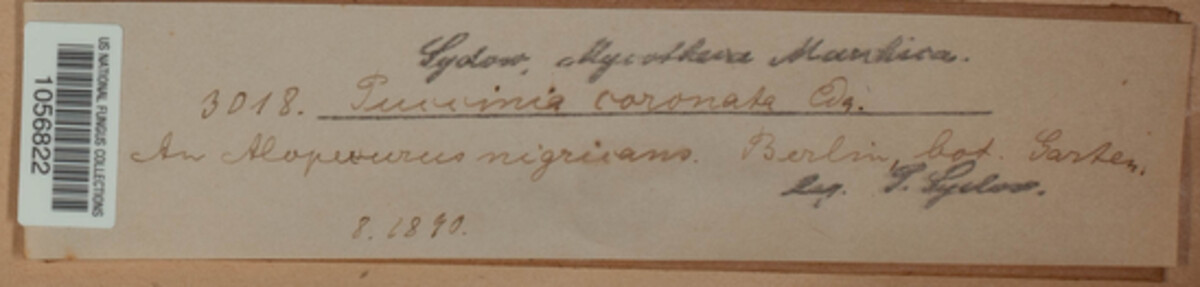 US NATIONAL FUNGUS COLLECTIONS
1056822
Sydow, Mycotheca Marchica.
3018. Puccinia coronata Cda.
An Alopecurus nigricans. Berlin, bot. Garten.
leg. P. Sydow.
8.1890.